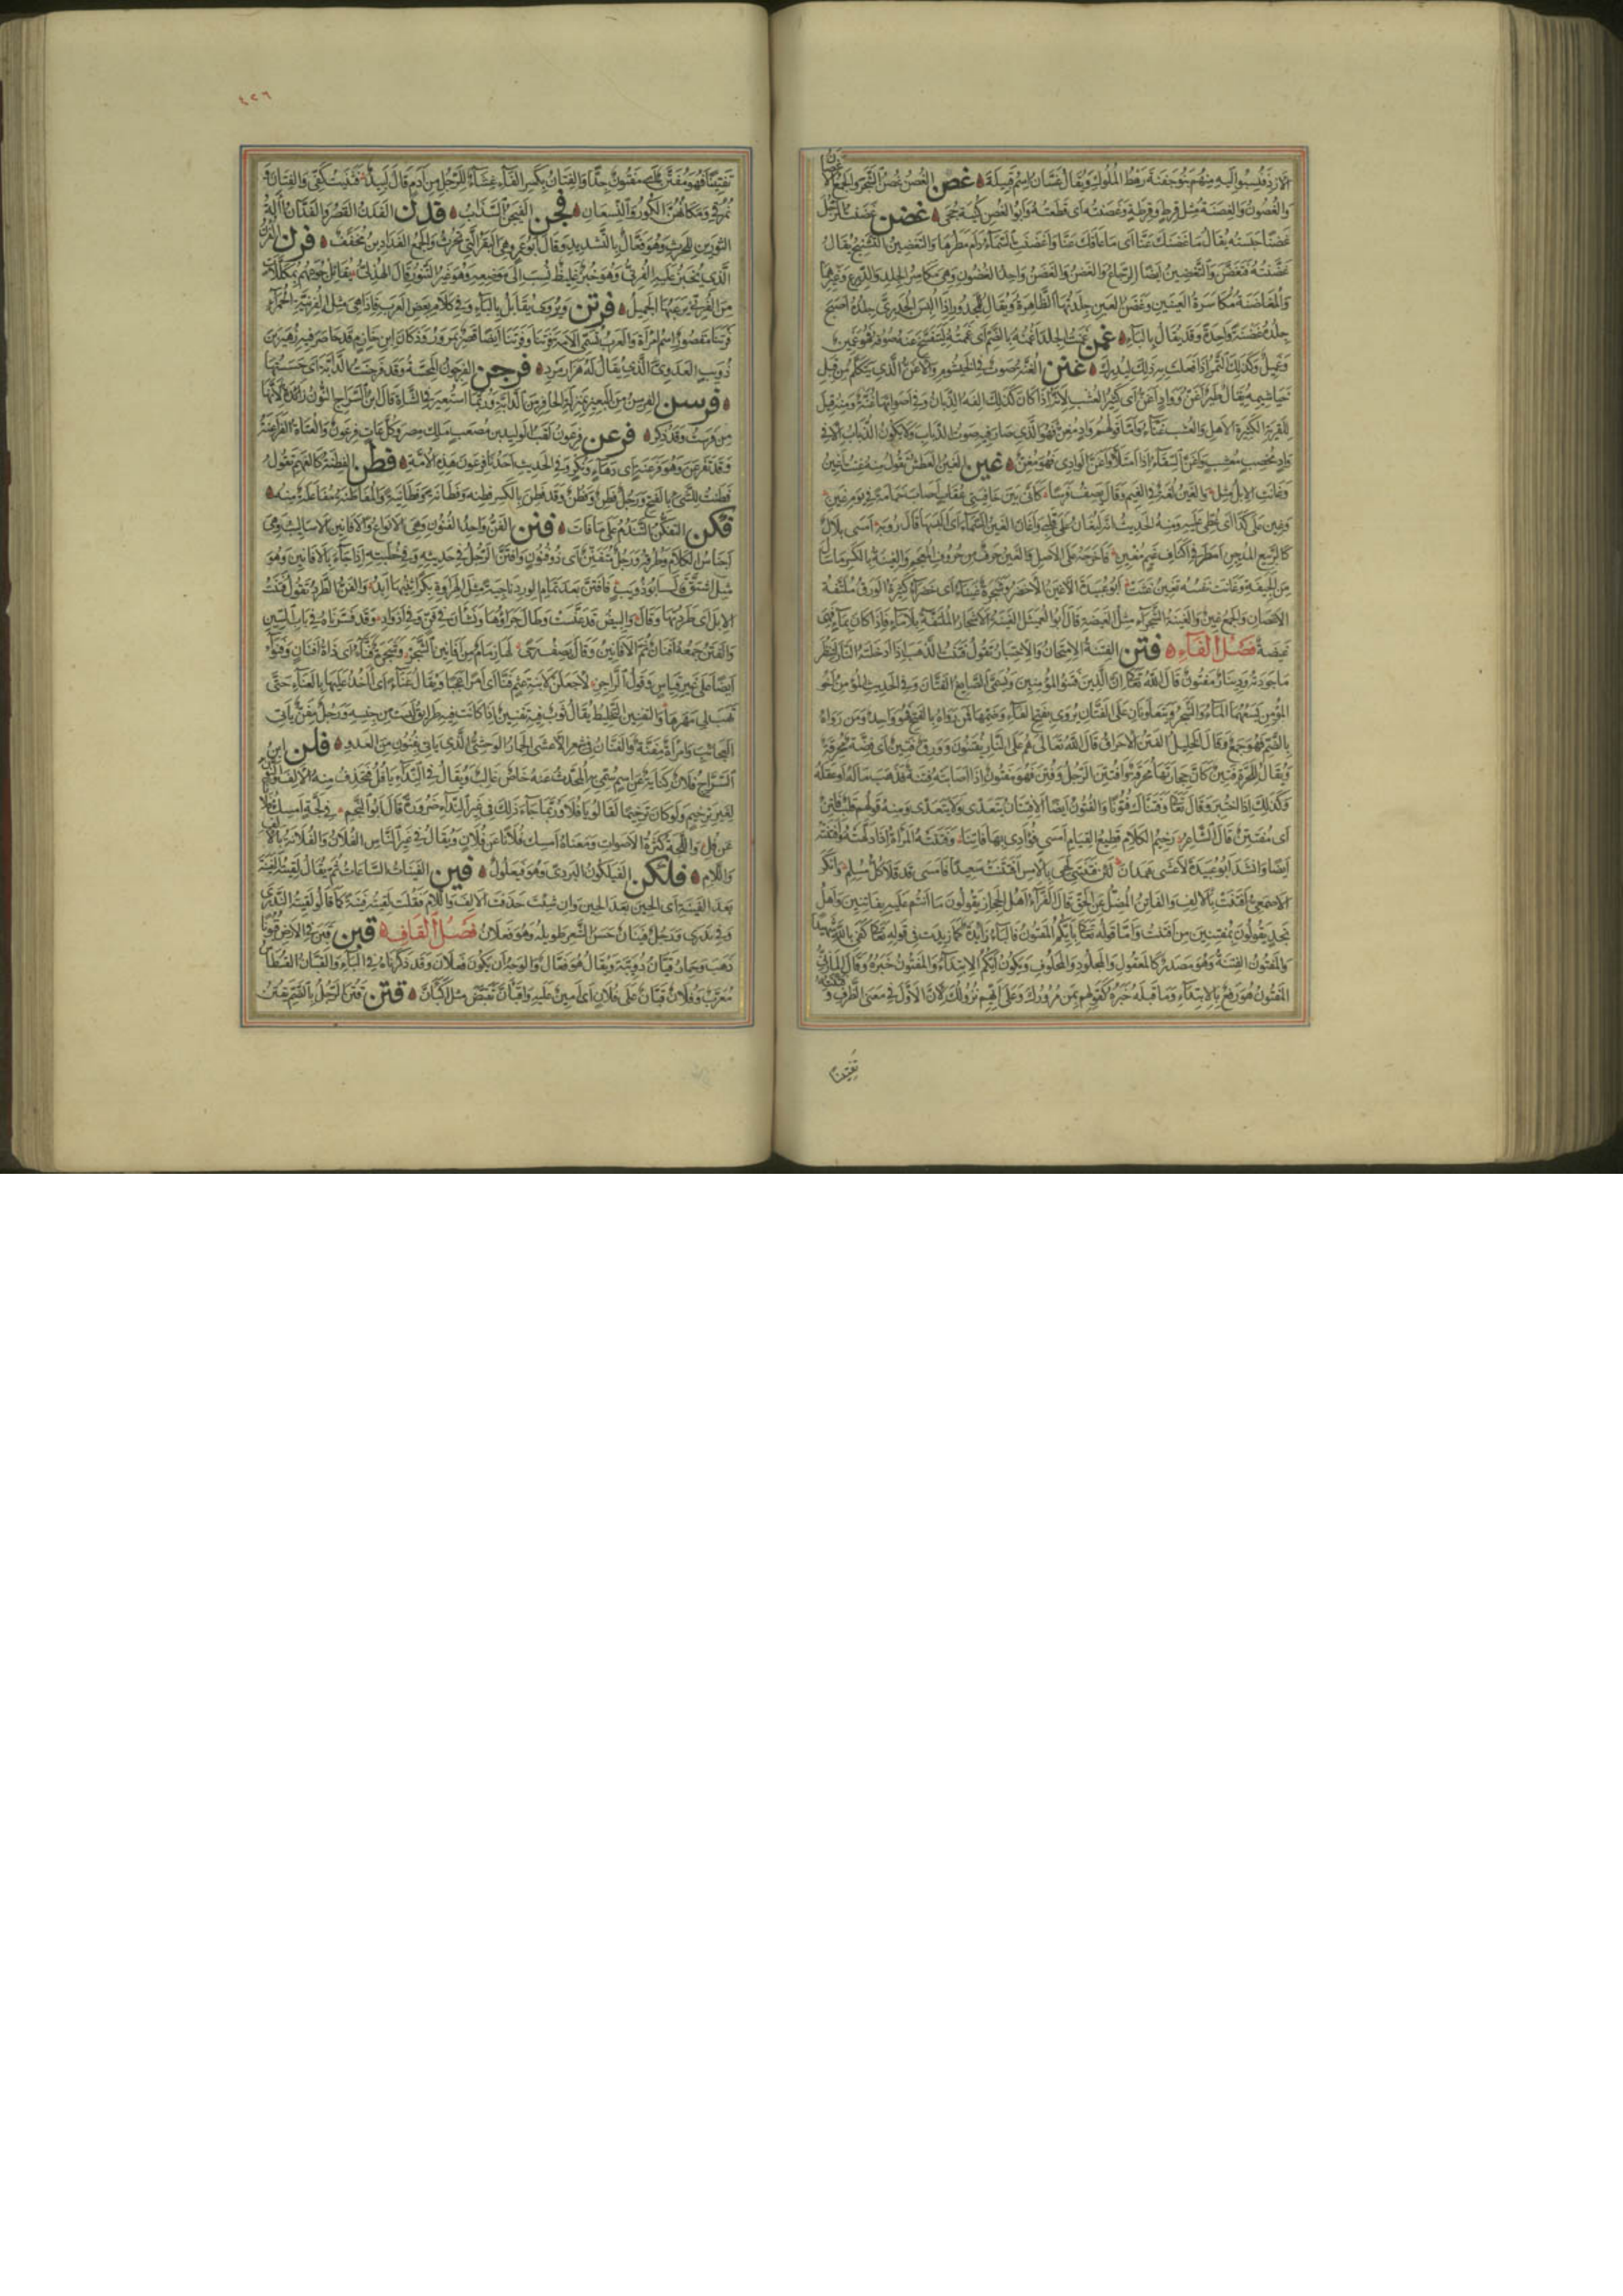 الأزد فنسبوا إليه منهم بنو جفنة رهط الملوك ويقال غسان اسم قبيلة غصن الغصن غصن الشجر والجمع الأغصان
والغصون والغصنة مثل قرط وقرطة وغصنته أي قطعته وأبو الغصن كنية جحى غضن غضنت الرجل
غضنا حبسته يقال ما غضنك عنا أي ما عاقك عنا وأغضنت السماء دام مطرها والتغضين التشنيج يقال
غضنته فتغضن والتغضين أيضا الرجاء والغضن والغضن واحد الغضون وهي مكاسر الجلد والدرع وغيرهما
والمغاضنة مكاسرة العينين وغضن العين جلدتها الظاهرة ويقال للمجدور إذا ألبس الجدري جلده أصبح
جلده غضنة واحدة وقد يقال بالباء غمن غمنت الجلد أغمنه بالضم أي غممته ليتفسخ عنه صوفه فهو غمين
وغميل وكذلك التمر إذا فعلت به ذلك ليدرك غنن الغنة صوت في الخيشوم والأغن الذي يتكلم من قبل
خياشيمه يقال طير أغن وواد أغن أي كثير العشب لأنه إذا كان كذلك ألفه الذبان وفي أصواتها غنة ومنه قيل
للقرية الكثيرة الأهل والعشب غناء وأما قولهم واد مغن فهو الذي صار فيه صوت الذباب ولا يكون الذباب إلا في
واد مخصب معشب وأغن السقاء إذا امتلأ وأغن الوادي فهو مغن غين الغين العطش تقول منه غنت أغين
وغانت الإبل مثل والغين لغة في الغيم وقال يصف فرسا كأني بين خافيتي عقاب أصاب حمامة في يوم غين
وغين على كذا أي غطي عليه ومنه الحديث إنه ليغان على قلبي وأغان الغين السماء أي ألبسها قال رؤبة أمسى بلال
كالربيع المدجن أمطر في أكناف غيم مغين فأخرجه على الأصل والغين حرف من حروف المعجم والغينة بالكسر ما سال
من الجيفة وغانت نفسه تغين غثت أبو عبيدة الأغين الأخضر وشجرة غيناء أي خضراء كثيرة الورق ملتفة
الأغصان والجمع غين والغينة الشجراء مثل الغيضة قال أبو العميثل الغينة الأشجار الملتفة بلا ماء فإذا كان بماء فهي
غيضة فصل الفاء فتن الفتنة الامتحان والاختبار تقول فتنت الذهب إذا أدخلته النار لتنظر
ما جودته ودينار مفتون قال الله تعالى إن الذين فتنوا المؤمنين ويسمى الصائغ الفتان وفي الحديث المؤمن أخو
المؤمن يسعهما الماء والشجر ويتعاونان على الفتان يروى بفتح الفاء وضمها فمن رواه بالفتح فهو واحد ومن رواه
بالضم فهو جمع وقال الخليل الفتن الإحراق قال الله تعالى يوم هم على النار يفتنون وورق فتين أي فضة محرقة
ويقال للحرة فتين كأن حجارتها محرقة وافتتن الرجل وفتن فهو مفتون إذا أصابته فتنة فذهب ماله أو عقله
وكذلك إذا اختبر وقال تعالى وفتناك فتونا والفتون أيضا الافتتان يتعدى ولا يتعدى ومنه قولهم قلب فاتن
أي مفتتن قال الشاعر رخيم الكلام قطيع القيام أمسى فؤادي بها فاتنا وفتنته المرأة إذا دلهته وأفتنته
أيضا وأنشد أبو عبيدة لأعشى همدان لئن فتنتني لهي بالأمس أفتنت سعيدا فأمسى قد قلا كل مسلم وأنكر
الأصمعي أفتنت بالألف والفاتن المضل عن الحق قال الفراء أهل الحجاز يقولون ما أنتم عليه بفاتنين وأهل
نجد يقولون بمفتنين من أفتنت وأما قوله تعالى بأيكم المفتون فالباء زائدة كما زيدت في قوله تعالى كفى بالله شهيدا
والمفتون الفتنة وهو مصدر كالمعقول والمجلود والمحلوف ويكون أيكم الابتداء والمفتون خبره وقال المازني
المفتون هو رفع بالابتداء وما قبله خبره كقولهم بمن مرورك وعلى أيهم نزولك لأن الأول في معنى الظرف وفتنته
تفتينا
٤٢٦
تفتينا فهو مفتن أي مفتون جدا والفتان بكسر الفاء غشاء للرجل من أدم قال لبيد فثنيت كفي والفتان و
نمرقي ومكانهن الكور والنسعان فجن الفيجن السذاب فدن الفدن القصر والفدان آلة
الثورين للحرث وهو فعال بالتشديد وقال أبو عمرو هي البقر التي تحرث والجمع الفدادين مخفف فرن الفرن
الذي يخبز عليه الفرني وهو خبز غليظ نسب إلى موضعه وهو غير التنور قال الهذلي يقاتل جوعهم بمكللات
من الفرني يرعبها الجميل فرتن ويروى يقابل بالباء وفي كلام بعض العرب فإذا هي مثل الفرنية الحمراء
فرتنا مقصور اسم امرأة والعرب تسمي الأمة فرتنا وفرتنا أيضا قصر بمرو وكان ابن خازم قد حاصر فيه زهير بن
ذؤيب العدوي الذي يقال له هزارمرد فرجن الفرجون المحسة وقد فرجنت الدابة أي حسستها
فرسن الفرسن من البعير بمنزلة الحافر من الدابة وربما استعير في الشاة قال ابن السراج النون زائدة لأنها
من فرست وقد ذكر فرعن فرعون لقب الوليد بن مصعب ملك مصر وكل عات فرعون والعتاة الفراعنة
وقد تفرعن وهو ذو فرعنة أي دهاء ونكر وفي الحديث أخذنا فرعون هذه الأمة فطن الفطنة كالفهم تقول
فطنت للشيء بالفتح ورجل فطن وفطن وقد فطن بالكسر فطنة وفطانة وفطانية والمفاطنة مفاعلة منه
فكن التفكن التندم على ما فات فنن الفن واحد الفنون وهي الأنواع والأفانين الأساليب وهي
أجناس الكلام وطرقه ورجل متفنن أي ذو فنون وافتن الرجل في حديثه وفي خطبته إذا جاء بالأفانين وهو
مثل اشتق قال أبو ذؤيب فافتن بعد تمام الورد ناجية مثل الهراوة بكرا ثنيها أبد والفن الطرد تقول فننت
الإبل أي طردتها وقال والبيض قد عنست وطال جراؤها ونشأن في فن وفي أذواد وقد فسرناه في باب السين
والفنن جمعه أفنان ثم الأفانين وقال يصف رحى لها زمام من أفانين الشجر وشجرة فناء أي ذات أفنان وفنواء
أيضا على غير قياس وقول الراجز لأجعلن لابنة عثم فنا أي أمرا عجبا ويقال عناء أي آخذ عليها بالعناء حتى
تهب لي مهرها والتفنين التخليط يقال ثوب فيه تفنين إذا كانت فيه طرائق ليست من جنسه ورجل مفن يأتي
العجائب وامرأة مفنة والفنان في شعر الأعشى الحمار الوحشي الذي يأتي بفنون من العدو فلن ابن
السراج فلان كناية عن اسم سمي به المحدث عنه خاص غالب ويقال في النداء يا فل فحذف منه الألف والنون
لغير ترخيم ولو كان ترخيما لقالوا يا فلا وربما جاء ذلك في غير النداء ضرورة قال أبو النجم في لجة أمسك فلانا
عن فل واللجة كثرة الأصوات ومعناه أمسك فلانا عن فلان ويقال في غير الناس الفلان والفلانة بالألف
واللام فلكن الفيلكون البردي وهو فيعلول فين الفينات الساعات ثم يقال لقيته الفينة
بعد الفينة أي الحين بعد الحين وإن شئت حذفت الألف واللام فقلت لقيته فينة كما قالوا لقيته الندرى
وفي ندرى ورجل فينان حسن الشعر طويله وهو فعلان فصل القاف قبن قبن في الأرض قبونا
ذهب وحمار قبان دويبة ويقال هو فعال والوجه أن يكون فعلان وقد ذكرناه في الباء والقبان القسطاس
معرب وفلان قبان على فلان أي أمين عليه واقبأن تقبض مثل اكبأن قتن قتن الرجل بالضم يقتن